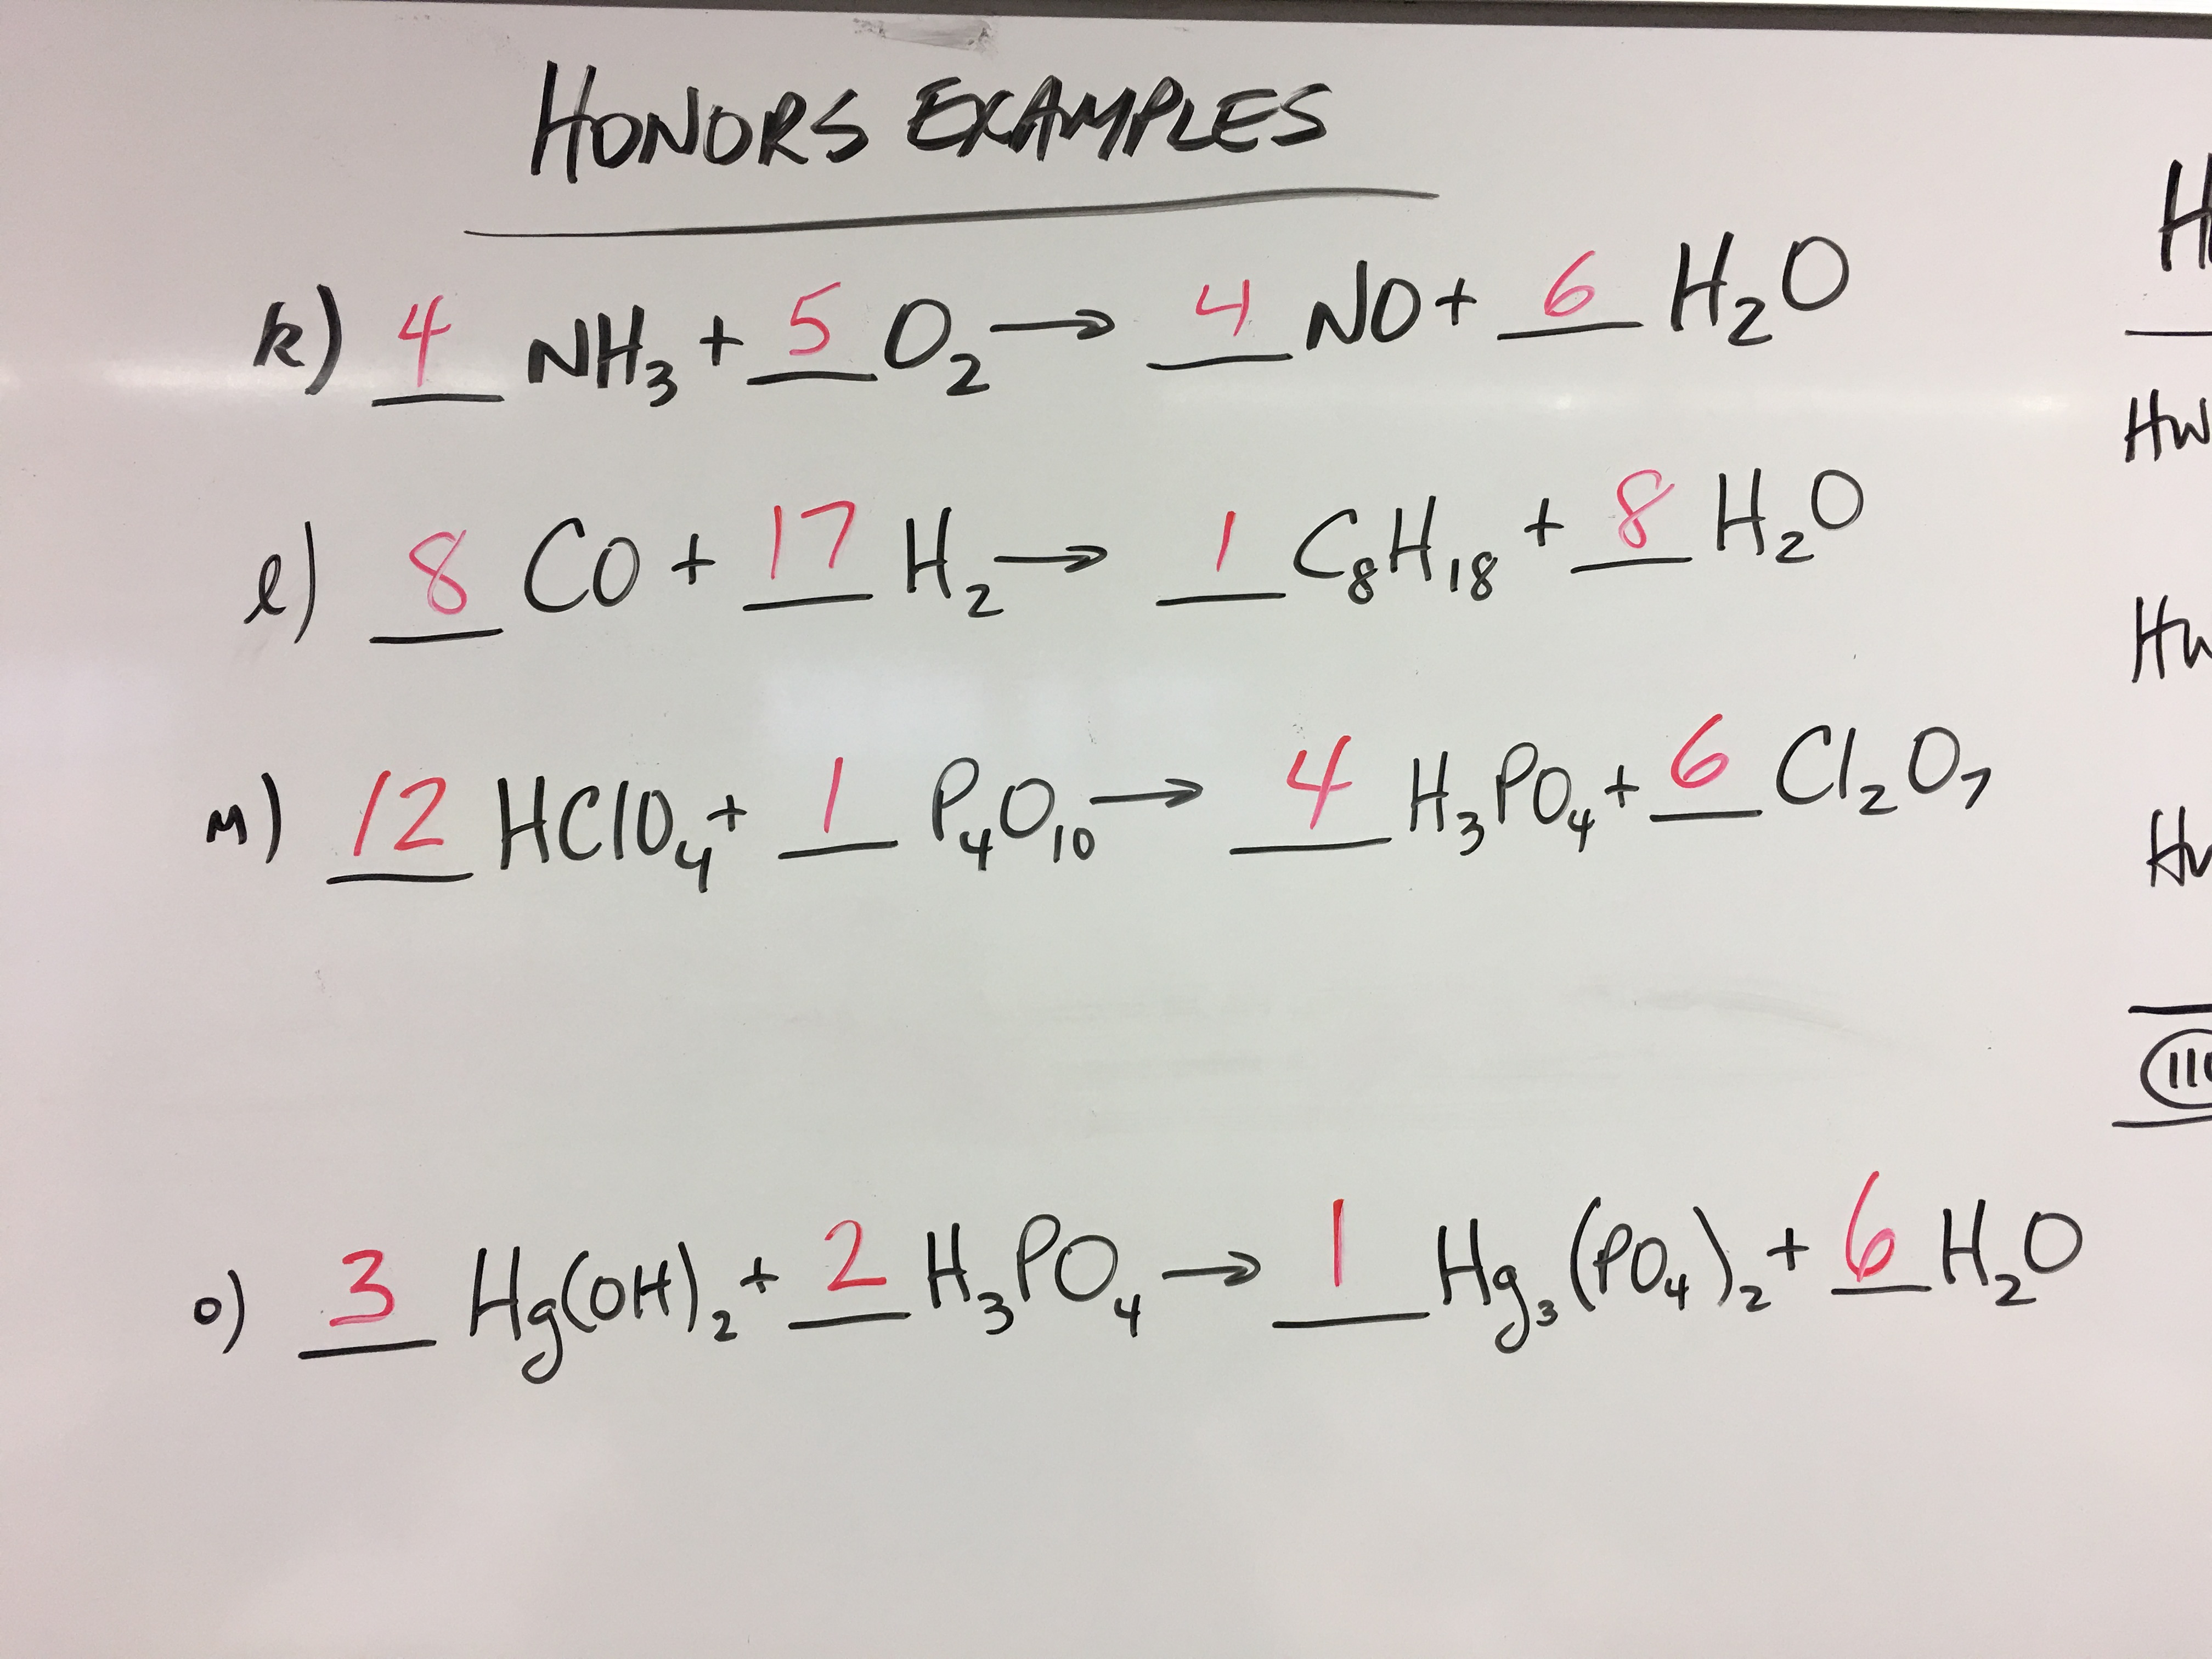 HONORS EXAMPLES
k) 4 NH₃ + 5 O₂ → 4 NO + 6 H₂O
l) 8 CO + 17 H₂ → 1 C₈H₁₈ + 8 H₂O
m) 12 HClO₄ + 1 P₄O₁₀ → 4 H₃PO₄ + 6 Cl₂O₇
o) 3 Hg(OH)₂ + 2 H₃PO₄ → 1 Hg₃(PO₄)₂ + 6 H₂O
H
HW
HW